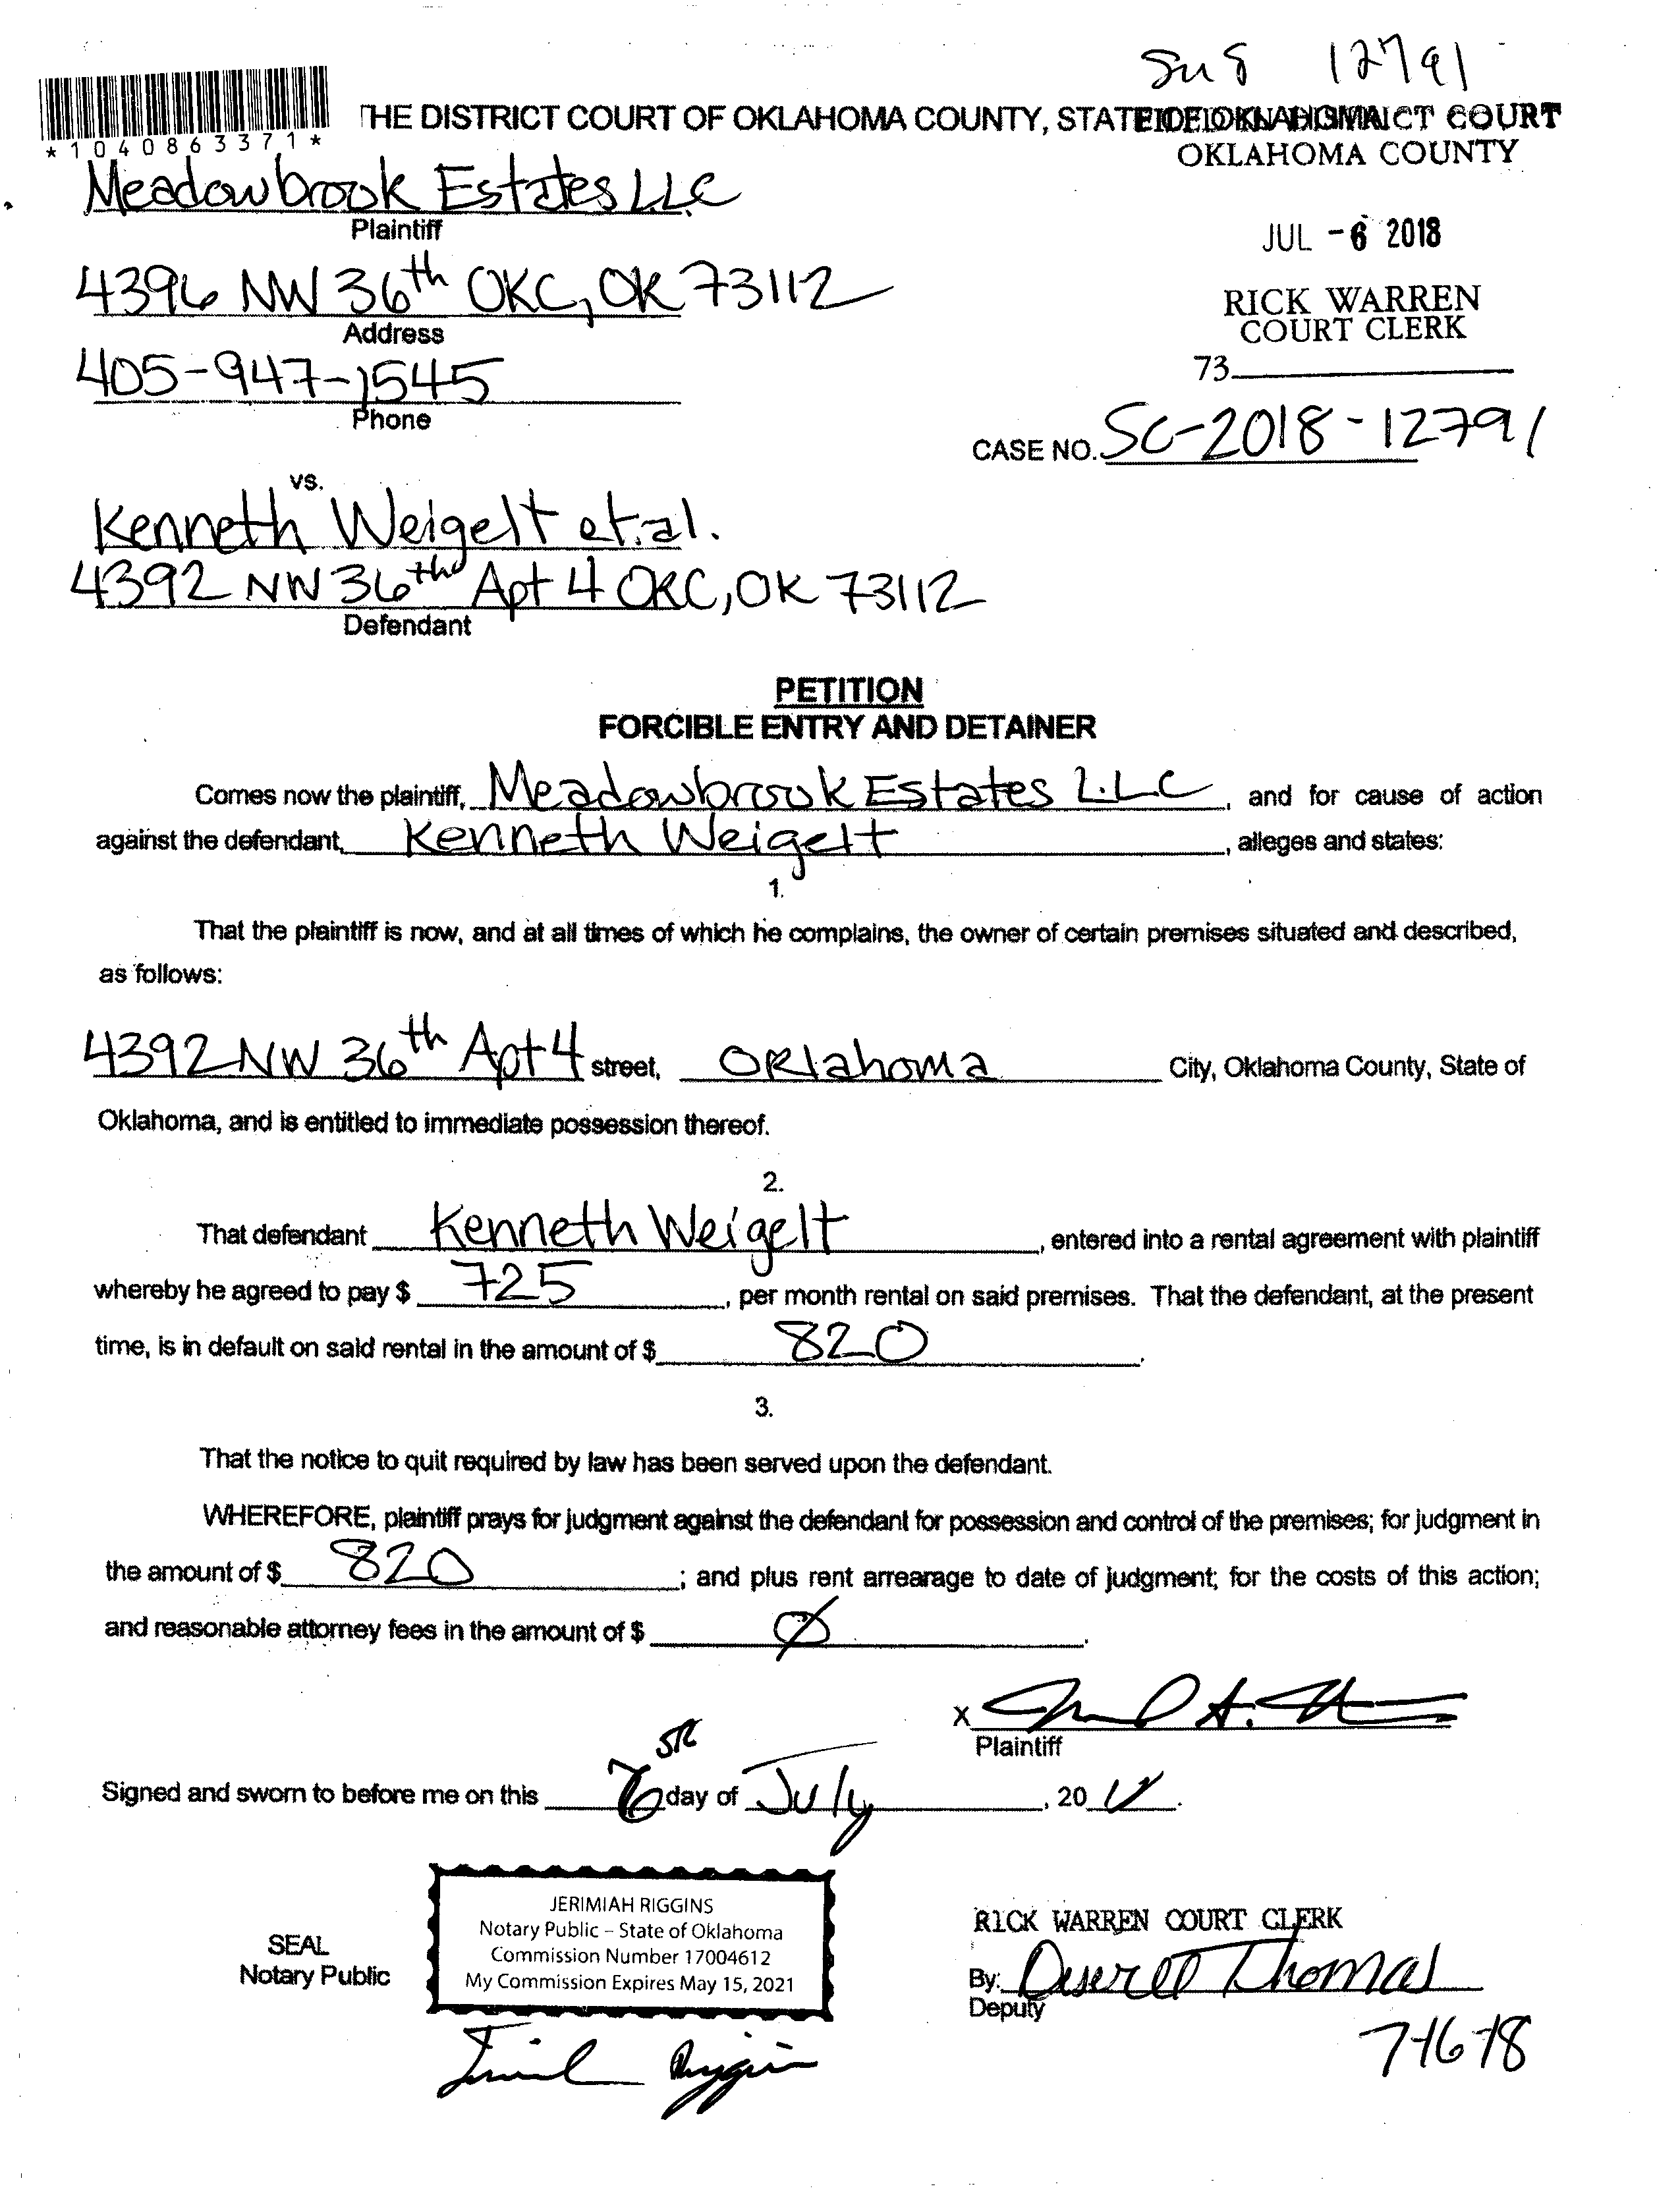 12791
*1040863371*
THE DISTRICT COURT OF OKLAHOMA COUNTY, STATE OF OKLAHOMA
COURT
OKLAHOMA COUNTY
Meadowbrook Estates LLC
Plaintiff
JUL -6 2018
4396 NW 36th OKC, OK 73112
Address
RICK WARREN
COURT CLERK
405-947-1545
Phone
73
CASE NO. SC-2018-12791
vs.
Kenneth Weigelt et.al.
4392 NW 36th Apt 4 OKC, OK 73112
Defendant
PETITION
FORCIBLE ENTRY AND DETAINER
Comes now the plaintiff, Meadowbrook Estates L.L.C, and for cause of action
against the defendant, Kenneth Weigelt, alleges and states:
1.
That the plaintiff is now, and at all times of which he complains, the owner of certain premises situated and described,
as follows:
4392 NW 36th Apt 4 street, Oklahoma City, Oklahoma County, State of
Oklahoma, and is entitled to immediate possession thereof.
2.
That defendant Kenneth Weigelt, entered into a rental agreement with plaintiff
whereby he agreed to pay $ 725, per month rental on said premises. That the defendant, at the present
time, is in default on said rental in the amount of $ 820.
3.
That the notice to quit required by law has been served upon the defendant.
WHEREFORE, plaintiff prays for judgment against the defendant for possession and control of the premises; for judgment in
the amount of $ 820; and plus rent arrearage to date of judgment; for the costs of this action;
and reasonable attorney fees in the amount of $ Ø.
X
Plaintiff
Signed and sworn to before me on this 6 day of July, 20
JERIMIAH RIGGINS
Notary Public – State of Oklahoma
Commission Number 17004612
My Commission Expires May 15, 2021
SEAL
Notary Public
RICK WARREN COURT CLERK
By: Thomas
Deputy
7-6-18